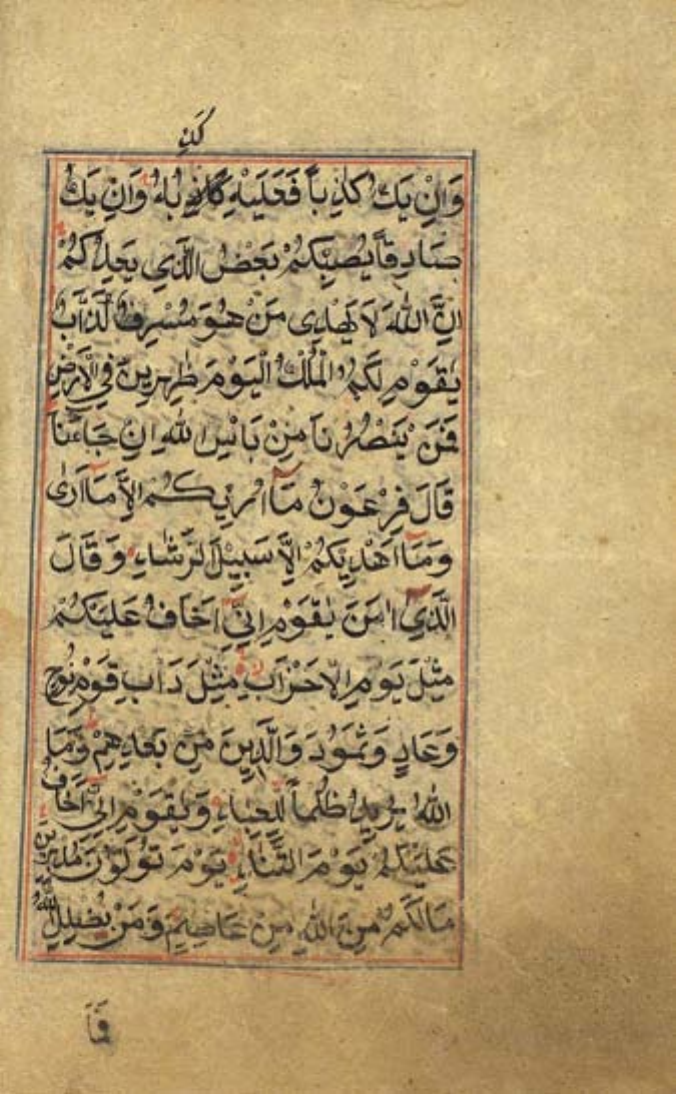 كذ
وَاِنْ يَكُ كَاذِباً فَعَلَيْهِ كَذِبُهُ وَاِنْ يَكُ
صَادِقًا يُصِبْكُمْ بَعْضُ الَّذِي يَعِدُكُمْ
اِنَّ اللّٰهَ لَا يَهْدِى مَنْ هُوَ مُسْرِفٌ كَذَّابٌ
يٰقَوْمِ لَكُمُ الْمُلْكُ الْيَوْمَ ظٰهِرِينَ فِي الْاَرْضِ
فَمَنْ يَنْصُرُنَا مِنْ بَاْسِ اللّٰهِ اِنْ جَاءَنَا
قَالَ فِرْعَوْنُ مَا اُرِيكُمْ اِلَّا مَا اَرٰى
وَمَا اَهْدِيكُمْ اِلَّا سَبِيلَ الرَّشَادِ وَقَالَ
الَّذِي اٰمَنَ يٰقَوْمِ اِنِّي اَخَافُ عَلَيْكُمْ
مِثْلَ يَوْمِ الْاَحْزَابِ مِثْلَ دَاْبِ قَوْمِ نُوحٍ
وَعَادٍ وَثَمُودَ وَالَّذِينَ مِنْ بَعْدِهِمْ وَمَا
اللّٰهُ يُرِيدُ ظُلْماً لِلْعِبَادِ وَيٰقَوْمِ اِنِّي اَخَافُ
عَلَيْكُمْ يَوْمَ التَّنَادِ يَوْمَ تُوَلُّوْنَ مُدْبِرِينَ
مَالَكُمْ مِنَ اللّٰهِ مِنْ عَاصِمٍ وَمَنْ يُضْلِلِ اللّٰهُ
فَمَا